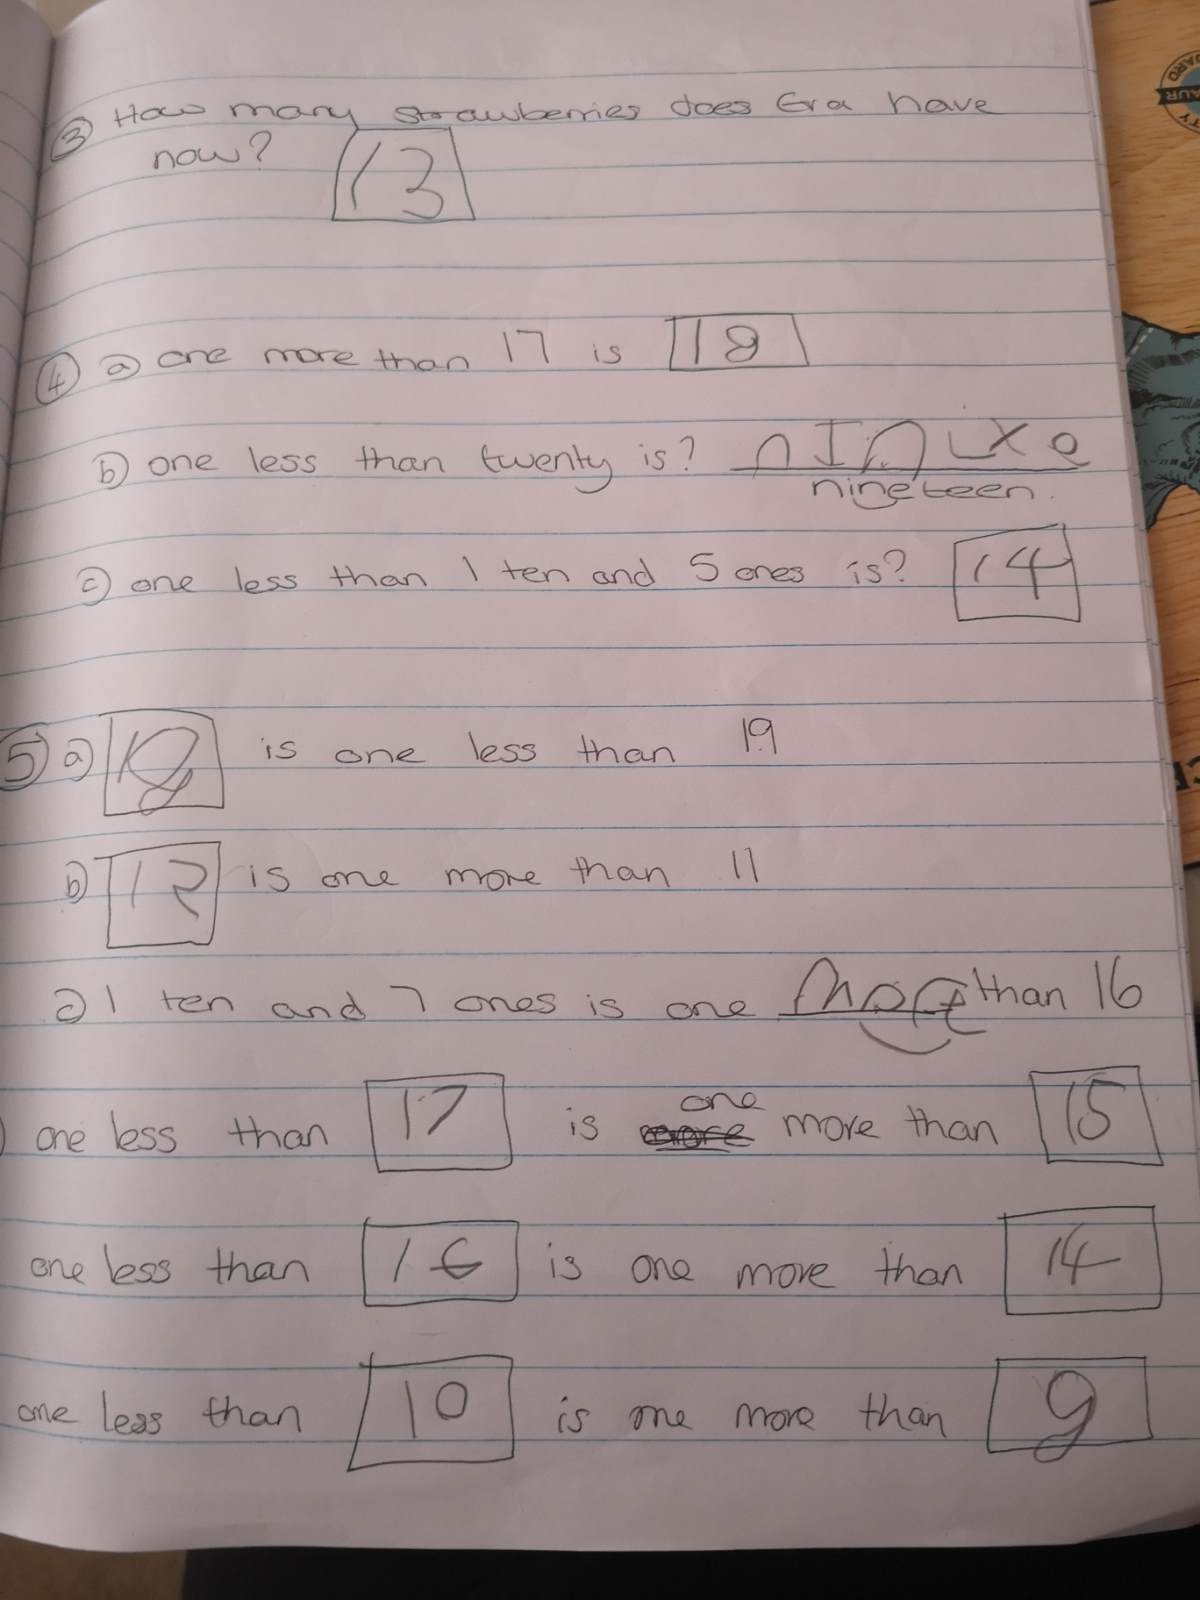 ③ How many strawberries does Eva have
now? 13
④ a one more than 17 is 18
b one less than twenty is?
nineteen.
c one less than 1 ten and 5 ones is? 14
⑤ a 18 is one less than 19
b 12 is one more than 11
c 1 ten and 7 ones is one more than 16
one
one less than 17 is more than 15
one less than 16 is one more than 14
one less than 10 is one more than 9